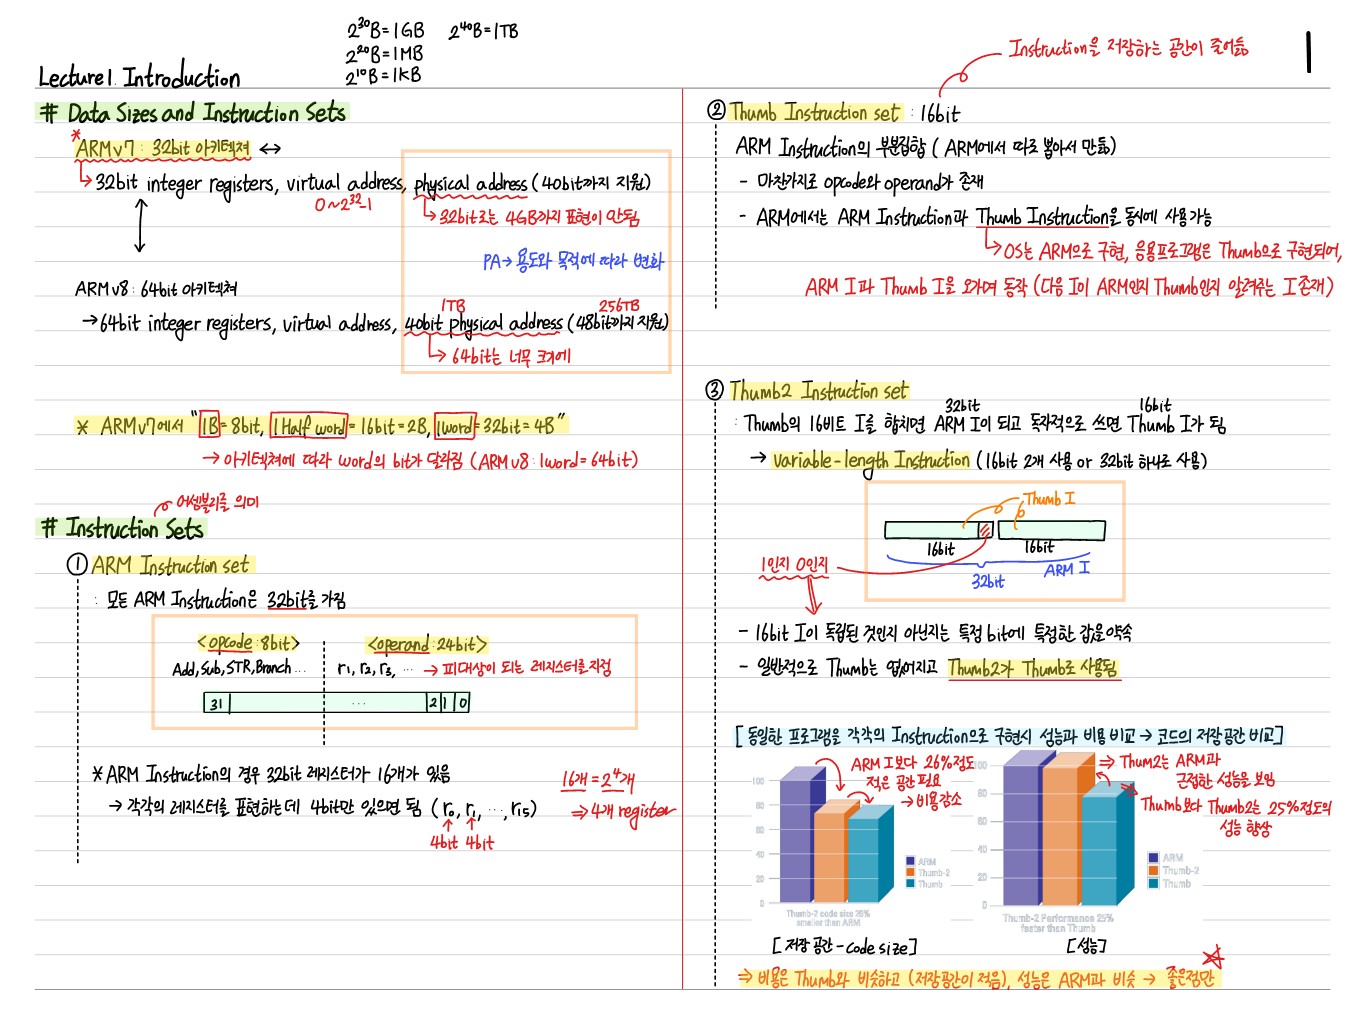 2³⁰B = 1GB 2⁴⁰B = 1TB
2²⁰B = 1MB
2¹⁰B = 1KB
Lecture1. Introduction
1
# Data Sizes and Instruction Sets
* ARMv7 : 32bit 아키텍쳐 ↔
↳ 32bit integer registers, virtual address, physical address (40bit까지 지원)
0~2³²-1
↳ 32bit로는 4GB까지 표현이 안됨
PA → 용도와 목적에 따라 변화
ARMv8 : 64bit 아키텍쳐
1TB 256TB
→ 64bit integer registers, virtual address, 40bit physical address (48bit까지 지원)
↳ 64bit는 너무 크기에
* ARMv7에서 "1B = 8bit, 1Half word = 16bit = 2B, 1word = 32bit = 4B"
→ 아키텍쳐에 따라 word의 bit가 달라짐 (ARMv8 : 1word = 64bit)
어셈블리를 의미
# Instruction Sets
① ARM Instruction set
: 모든 ARM Instruction은 32bit를 가짐
<opcode : 8bit> <operand : 24bit>
Add, Sub, STR, Branch ... r₁, r₂, r₃, ... → 피대상이 되는 레지스터를 지정
31 ... 2 1 0
* ARM Instruction의 경우 32bit 레지스터가 16개가 있음
16개 = 2⁴개
→ 각각의 레지스터를 표현하는데 4bit만 있으면 됨 (r₀, r₁, ..., r₁₅)
⇒ 4개 register
4bit 4bit
Instruction을 저장하는 공간이 줄어듦
② Thumb Instruction set : 16bit
ARM Instruction의 부분집합 (ARM에서 따로 뽑아서 만듦)
- 마찬가지로 opcode와 operand가 존재
- ARM에서는 ARM Instruction과 Thumb Instruction을 동시에 사용가능
↳ OS는 ARM으로 구현, 응용프로그램은 Thumb으로 구현되어,
ARM I과 Thumb I을 오가며 동작 (다음 I이 ARM인지 Thumb인지 알려주는 I 존재)
③ Thumb2 Instruction set
32bit 16bit
: Thumb의 16비트 I를 합치면 ARM I이 되고 독자적으로 쓰면 Thumb I가 됨
→ variable-length Instruction (16bit 2개 사용 or 32bit 하나로 사용)
Thumb I
16bit 16bit
ARM I
32bit
1인지 0인지
- 16bit I이 독립된 것인지 아닌지는 특정 bit에 특정한 값을 약속
- 일반적으로 Thumb는 없어지고 Thumb2가 Thumb로 사용됨
[동일한 프로그램을 각각의 Instruction으로 구현시 성능과 비용 비교 → 코드의 저장공간 비교]
ARM I보다 26%정도
적은 공간 필요
→ 비용감소
100
80
60
40
20
0
ARM
Thumb-2
Thumb
Thumb-2 code size 26%
smaller than ARM
[저장 공간 - code size]
⇒ Thum2는 ARM과
근접한 성능을 보임
⇒ Thumb보다 Thumb2는 25%정도의
성능 향상
100
80
60
40
20
0
ARM
Thumb-2
Thumb
Thumb-2 Performance 25%
faster than Thumb
[성능]
⇒ 비용은 Thumb와 비슷하고 (저장공간이 적음), 성능은 ARM과 비슷 → 좋은점만